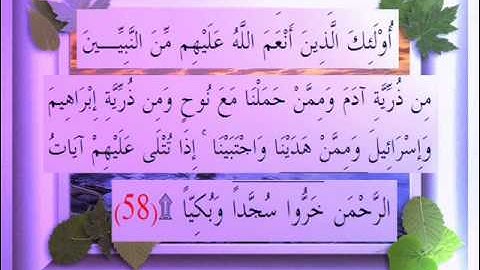 أُوْلَئِكَ الَّذِينَ أَنْعَمَ اللَّهُ عَلَيْهِم مِّنَ النَّبِيِّـــينَ
مِن ذُرِّيَّةِ آدَمَ وَمِمَّنْ حَمَلْنَا مَعَ نُوحٍ وَمِن ذُرِّيَّةِ إِبْرَاهِيمَ
وَإِسْرَائِيلَ وَمِمَّنْ هَدَيْنَا وَاجْتَبَيْنَا ۚ إِذَا تُتْلَى عَلَيْهِمْ آيَاتُ
الرَّحْمَن خَرُّوا سُجَّداً وَبُكِيّاً ۩ (58)